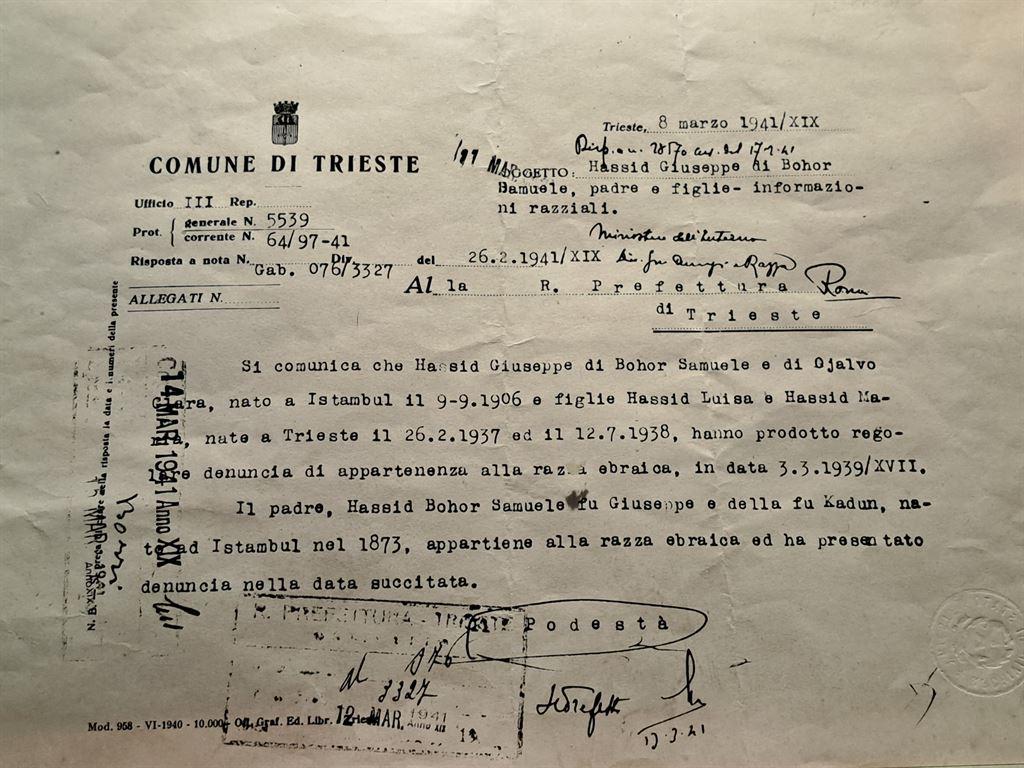 COMUNE DI TRIESTE
Trieste, 8 marzo 1941/XIX
OGGETTO: Hassid Giuseppe di Bohor
Samuele, padre e figlie- informazio-
ni razziali.
Ufficio III Rep.
Prot. generale N. 5539
corrente N. 64/97-41
Risposta a nota N. Gab. 076/3327 Div. del 26.2.1941/XIX
Ministero dell'Interno
ALLEGATI N.
Alla R. Prefettura
Roma
di Trieste
Si comunica che Hassid Giuseppe di Bohor Samuele e di Ojalvo
ara, nato a Istambul il 9-9.1906 e figlie Hassid Luisa e Hassid Ma-
a, nate a Trieste il 26.2.1937 ed il 12.7.1938, hanno prodotto rego-
re denuncia di appartenenza alla razza ebraica, in data 3.3.1939/XVII.
Il padre, Hassid Bohor Samuele fu Giuseppe e della fu Kadun, na-
to ad Istambul nel 1873, appartiene alla razza ebraica ed ha presentato
denuncia nella data succitata.
Il Podestà
R. PREFETTURA - TRIESTE
076
3327
12 MAR. 1941 Anno XIX
14 MAR 1941 Anno XIX
N. B. della risposta la data e i numeri della presente
17.3.41
Mod. 958 - VI-1940 - 10.000 - Off. Graf. Ed. Libr. Trieste